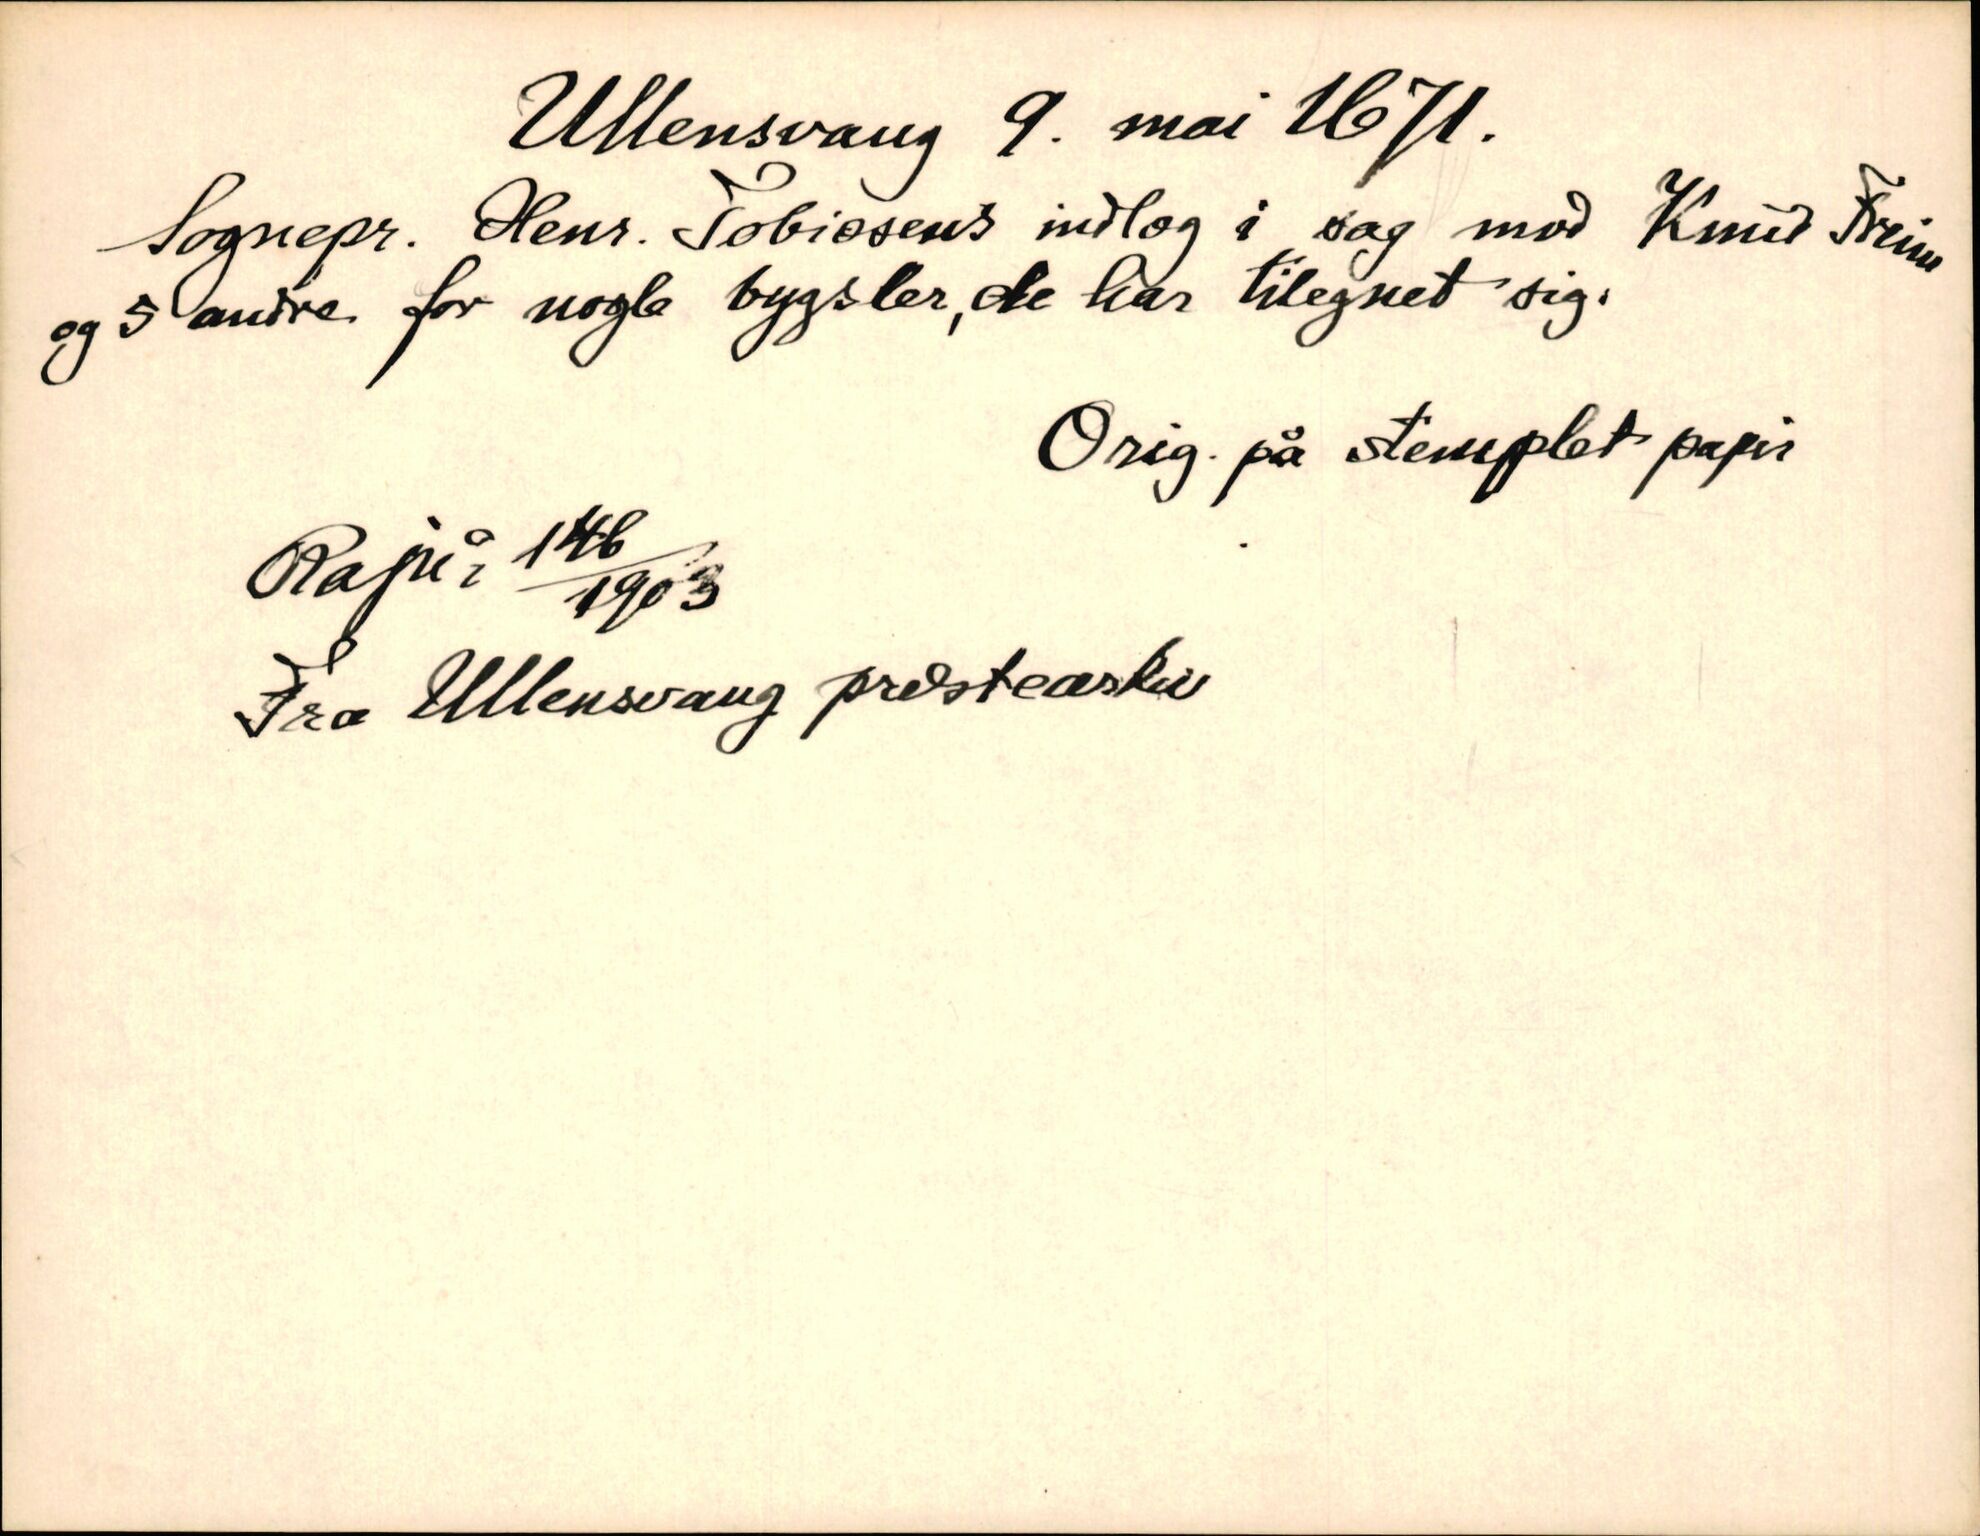 Ullensvang 9. mai 1671.
Sognepr. Henr. Tobiasens indlæg i sag mod Knud Freim
og 5 andre for nogle bygsler, de har tilegnet sig.
Orig. på stemplet papir
Rapir 146/1903
Fra Ullensvang prestearkiv